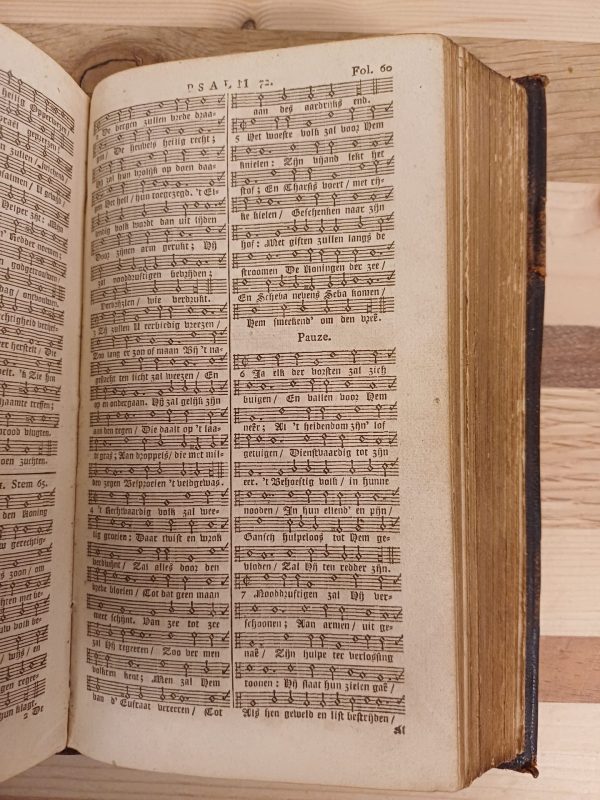 heilig
zullen
Helper zijn
Redder
God getrouwen
zuchten.
Stem 65.
den Koning
zoon / om
wijs / en
hun klagt.
2 De
PSALM 72.
Fol. 60
De bergen zullen vrede draa-
gen / De heuvels heilig recht;
Hy zal hun vrolijk op doen daa-
gen Het heil / hun toegezegd. 't El-
lendig volk wordt dan uit lijden
Door zijnen arm gerukt; Hy
zal nooddruftigen bevrijden;
Verbrijzlen / wie verdrukt.
3 Zy zullen U eerbiedig vreezen /
Zoo lang er zon of maan By 't na-
geslacht ten licht zal weezen / En
op en ondergaan. Hy zal gelijk zijn
aan den regen / Die daalt op 't laa-
di gras; Aan droppels / die met mil-
der zegen Besproeien 't veldgewas.
4 't Rechtvaardig volk zal wee-
lig groeien; Daar twist en wrok
verdwijnt / Zal alles door den
vrede bloeien / Tot dat geen maan
meer schijnt. Van zee tot zee
zal Hy regeeren / Zoo ver men
volkren kent; Men zal Hem
van d' Eufraat vereeren / Tot
aan des aardrijks end.
5 Het woeste volk zal voor Hem
knielen: Zijn vijand lekt het
stof; En Tharsis voert / met rij-
ke kielen / Geschenken naar zijn
hof: Met giften zullen langs de
stroomen De Koningen der zee /
En Scheba nevens Seba komen /
Hem smeekend' om den vreê.
Pauze.
6 Ja elk der vorsten zal zich
buigen / En vallen voor Hem
neêr; Al 't heidendom zijn' lof
getuigen / Dienstvaardig tot zijn
eer. 't Behoeftig volk / in hunne
nooden / In hun ellend' en pijn /
Gansch hulpeloos tot Hem ge-
vloden / Zal Hy ten redder zijn.
7 Nooddruftigen zal Hy ver-
schoonen; Aan armen / uit ge-
naê / Zijn hulpe ter verlossing
toonen: Hy slaat hun zielen gaê /
Als hen geweld en list bestrijden /
Al